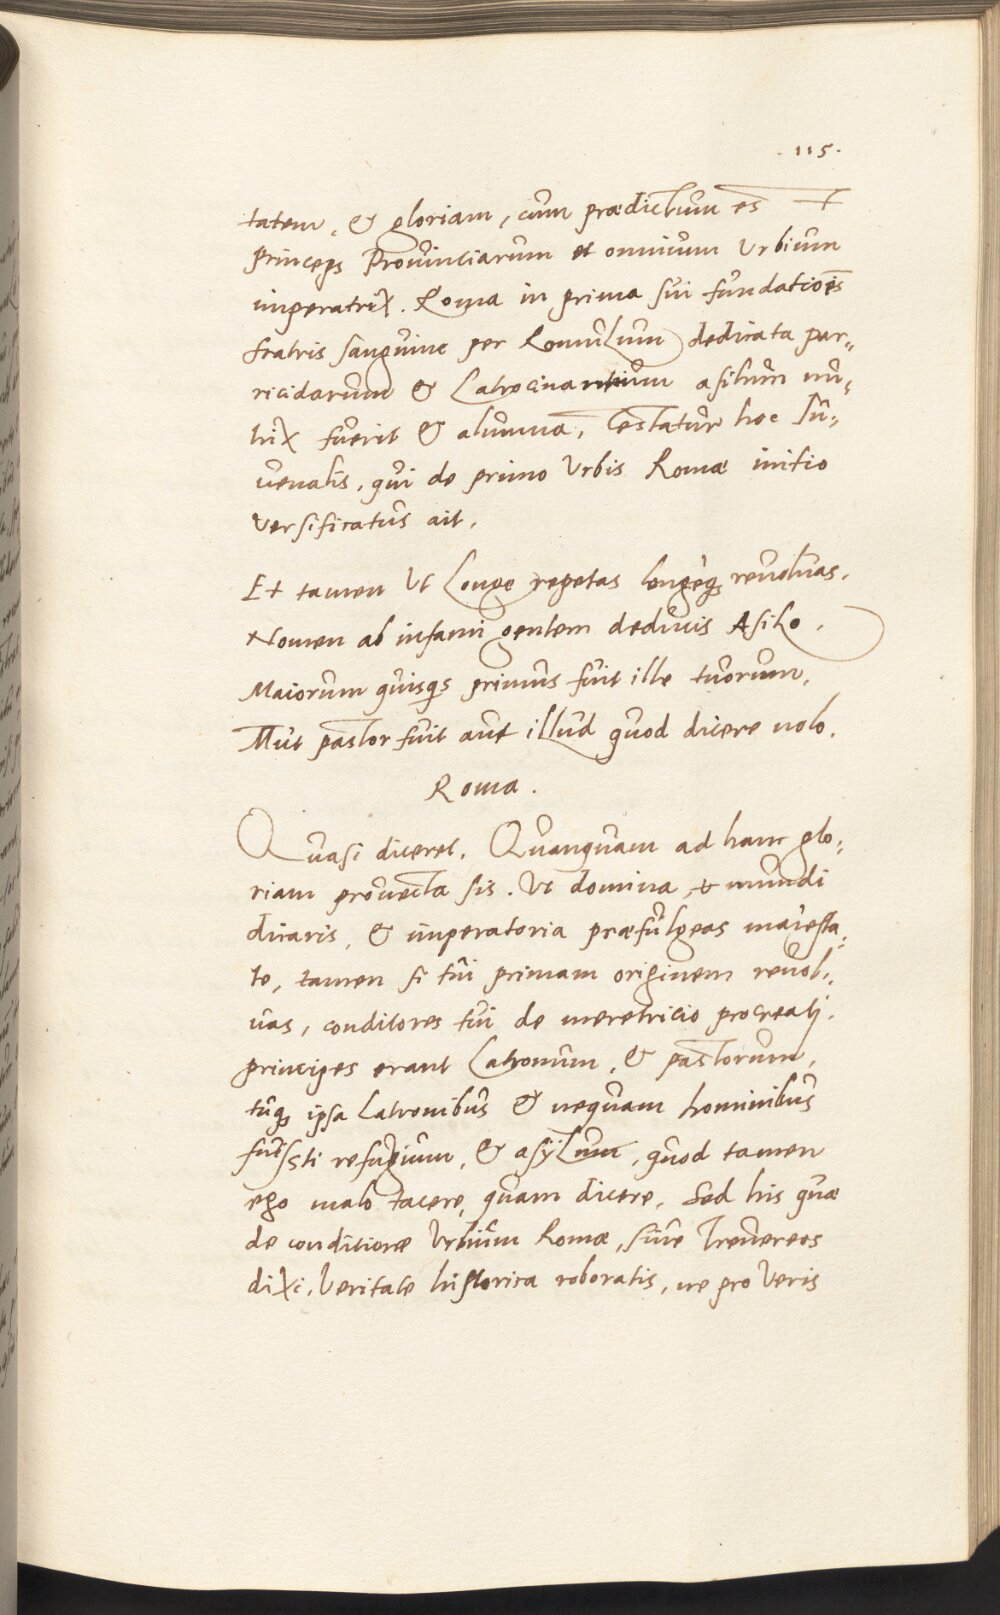 .115.
tatem, & gloriam, cum prædictum est
Princeps Provinciarum et omnium Urbium
imperatrix. Roma in prima sui fundatiōis
fratris sanguine per Romulum dedicata par„
ricidarum & Latrocinantium asilum nu„
trix fuerit & alumna, Testatur hoc Iu„
venalis, qui de primo Urbis Romæ initio
versificatus ait.
Et tamen ut Longe repetas longeq̃ revolvas.
Nomen ab infami gentem deducis Asilo.
Maiorum quisquis primus fuit ille tuorum,
Aut pastor fuit aut illud quod dicere nolo.
Roma.
Quasi diceret. Quanquam ad hanc glo„
riam provecta sis. Ut domina & mundi
dicaris, & imperatoria præfulgeas maiesta„
te, tamen si tui primam originem revol„
vas, conditores tui de meretricio procreati.
principes erant Latronum, & pastorum,
tuq̃ ipsa Latronibus & nequam hominibus
fuisti refugium, & asylum, quod tamen
ego malo tacere, quam dicere. Sed his quæ
de conditione Urbium Romæ, sive Trevereos
dixi, Veritate historica roboratis, ne pro Veris